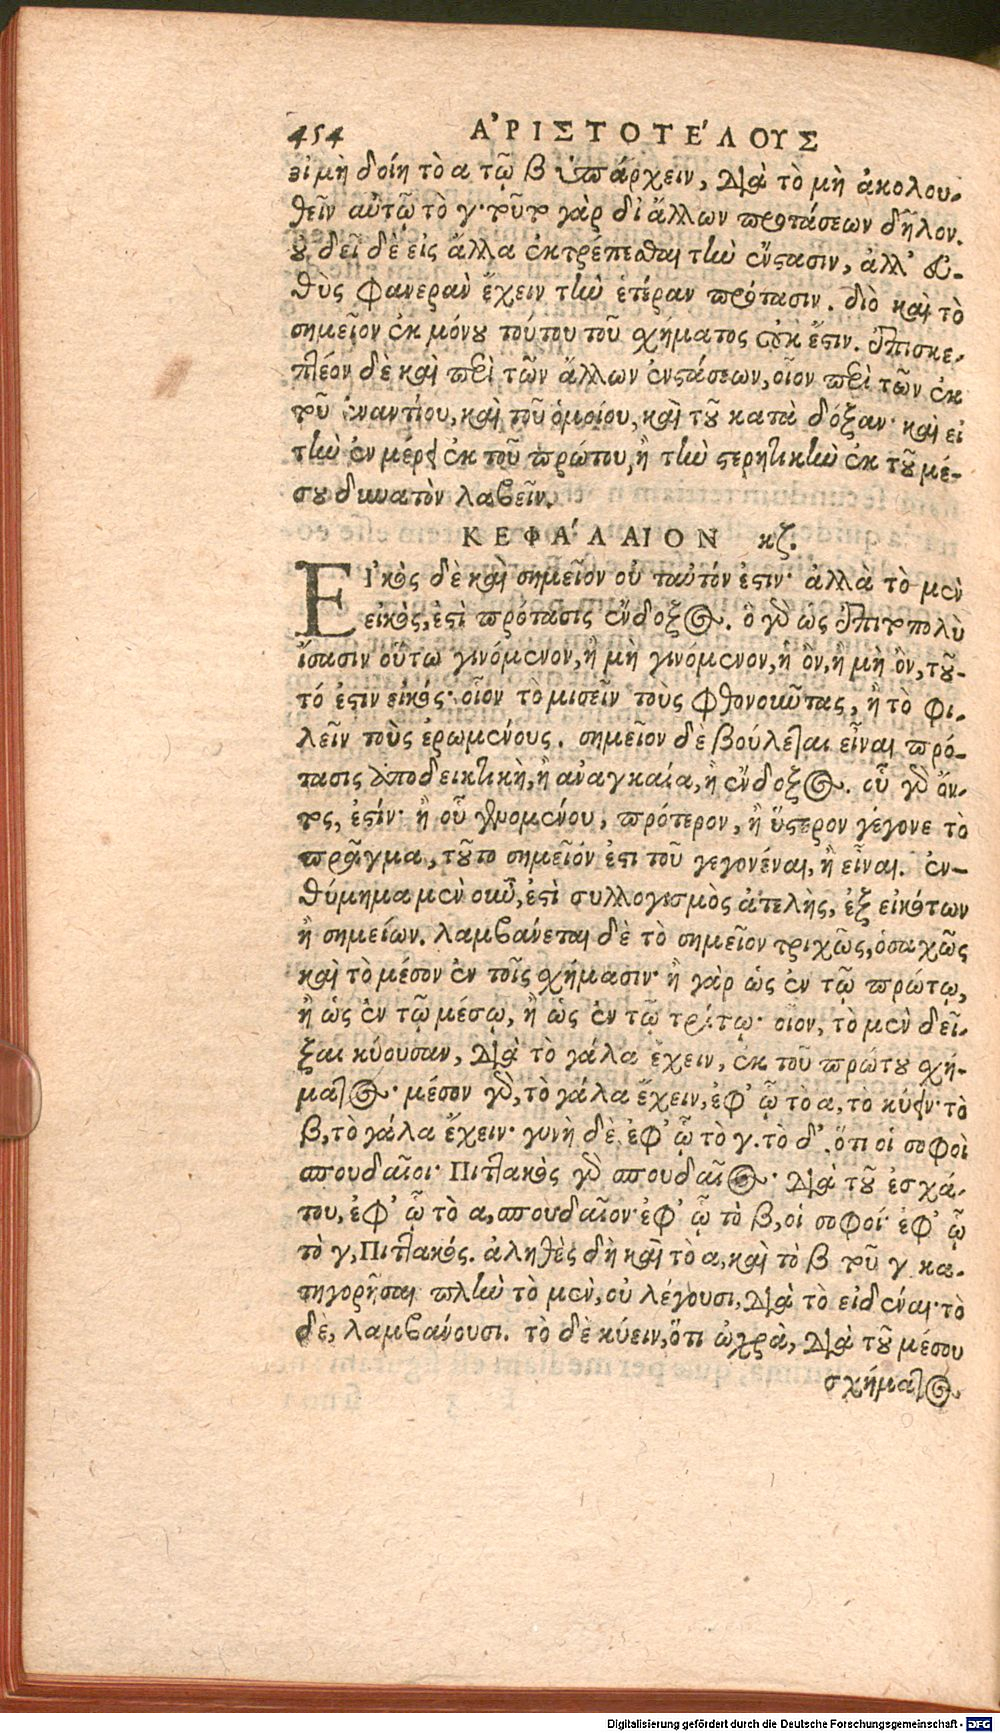 454 ΑʼΡΙΣΤΟΤΕʹΛΟΥΣ
εἰ μὴ δοίη τὸ α τῷ β ὑπάρχειν, διὰ τὸ μὴ ἀκολου-
θεῖν αὐτῷ τὸ γ· τοῦτο γὰρ δι' ἄλλων προτάσεων δῆλον.
οὐ δεῖ δὲ εἰς ἄλλα ἐκτρέπεσθαι τὴν ἔνστασιν, ἀλλ' εὐ-
θὺς φανερὰν ἔχειν τὴν ἑτέραν πρότασιν. διὸ καὶ τὸ
σημεῖον ἐκ μόνου τούτου τοῦ σχήματος οὐκ ἔστιν. ἐπισκε-
πτέον δὲ καὶ περὶ τῶν ἄλλων ἐνστάσεων, οἷον περὶ τῶν ἐκ
τοῦ ἐναντίου, καὶ τοῦ ὁμοίου, καὶ τοῦ κατὰ δόξαν· καὶ εἰ
τὴν ἐν μέρει ἐκ τοῦ πρώτου, ἢ τὴν στερητικὴν ἐκ τοῦ μέ-
σου δυνατὸν λαβεῖν.
ΚΕΦΑʹΛΑΙΟΝ κζ.
ΕΙʼκὸς δὲ καὶ σημεῖον οὐ ταὐτόν ἐστιν· ἀλλὰ τὸ μὲν
εἰκὸς, ἐστὶ πρότασις ἔνδοξος. ὃ γὰρ ὡς ἐπιτοπολὺ
ἴσασιν οὕτω γινόμενον, ἢ μὴ γινόμενον, ἢ ὂν, ἢ μὴ ὂν, τοῦ-
τό ἐστιν εἰκός· οἷον τὸ μισεῖν τοὺς φθονοῦντας, ἢ τὸ φι-
λεῖν τοὺς ἐρωμένους. σημεῖον δὲ βούλεται εἶναι πρό-
τασις ἀποδεικτικὴ, ἢ ἀναγκαία, ἢ ἔνδοξος. οὗ γὰρ ὄν-
τος, ἐστίν· ἢ οὗ γενομένου, πρότερον, ἢ ὕστερον γέγονε τὸ
πρᾶγμα, τοῦτο σημεῖόν ἐστι τοῦ γεγονέναι, ἢ εἶναι. ἐν-
θύμημα μὲν οὖν, ἐστὶ συλλογισμὸς ἀτελὴς, ἐξ εἰκότων
ἢ σημείων. λαμβάνεται δὲ τὸ σημεῖον τριχῶς, ὁσαχῶς
καὶ τὸ μέσον ἐν τοῖς σχήμασιν· ἢ γὰρ ὡς ἐν τῷ πρώτῳ,
ἢ ὡς ἐν τῷ μέσῳ, ἢ ὡς ἐν τῷ τρίτῳ· οἷον, τὸ μὲν δεῖ-
ξαι κύουσαν, διὰ τὸ γάλα ἔχειν, ἐκ τοῦ πρώτου σχή-
ματος· μέσον γὰρ, τὸ γάλα ἔχειν, ἐφ' ᾧ τὸ α, τὸ κύειν· τὸ
β, τὸ γάλα ἔχειν· γυνὴ δὲ ἐφ' ᾧ τὸ γ. τὸ δ', ὅτι οἱ σοφοὶ
σπουδαῖοι· Πιττακὸς γὰρ σπουδαῖος· διὰ τοῦ ἐσχά-
του, ἐφ' ᾧ τὸ α, σπουδαῖον· ἐφ' ᾧ τὸ β, οἱ σοφοί· ἐφ' ᾧ
τὸ γ, Πιττακός. ἀληθὲς δὴ καὶ τὸ α, καὶ τὸ β τοῦ γ κα-
τηγορῆσαι πλὴν τὸ μὲν, οὐ λέγουσι, διὰ τὸ εἰδέναι· τὸ
δὲ, λαμβάνουσι. τὸ δὲ κύειν, ὅτι ὠχρὰ, διὰ τοῦ μέσου
σχήματος
Digitalisierung gefördert durch die Deutsche Forschungsgemeinschaft - DFG